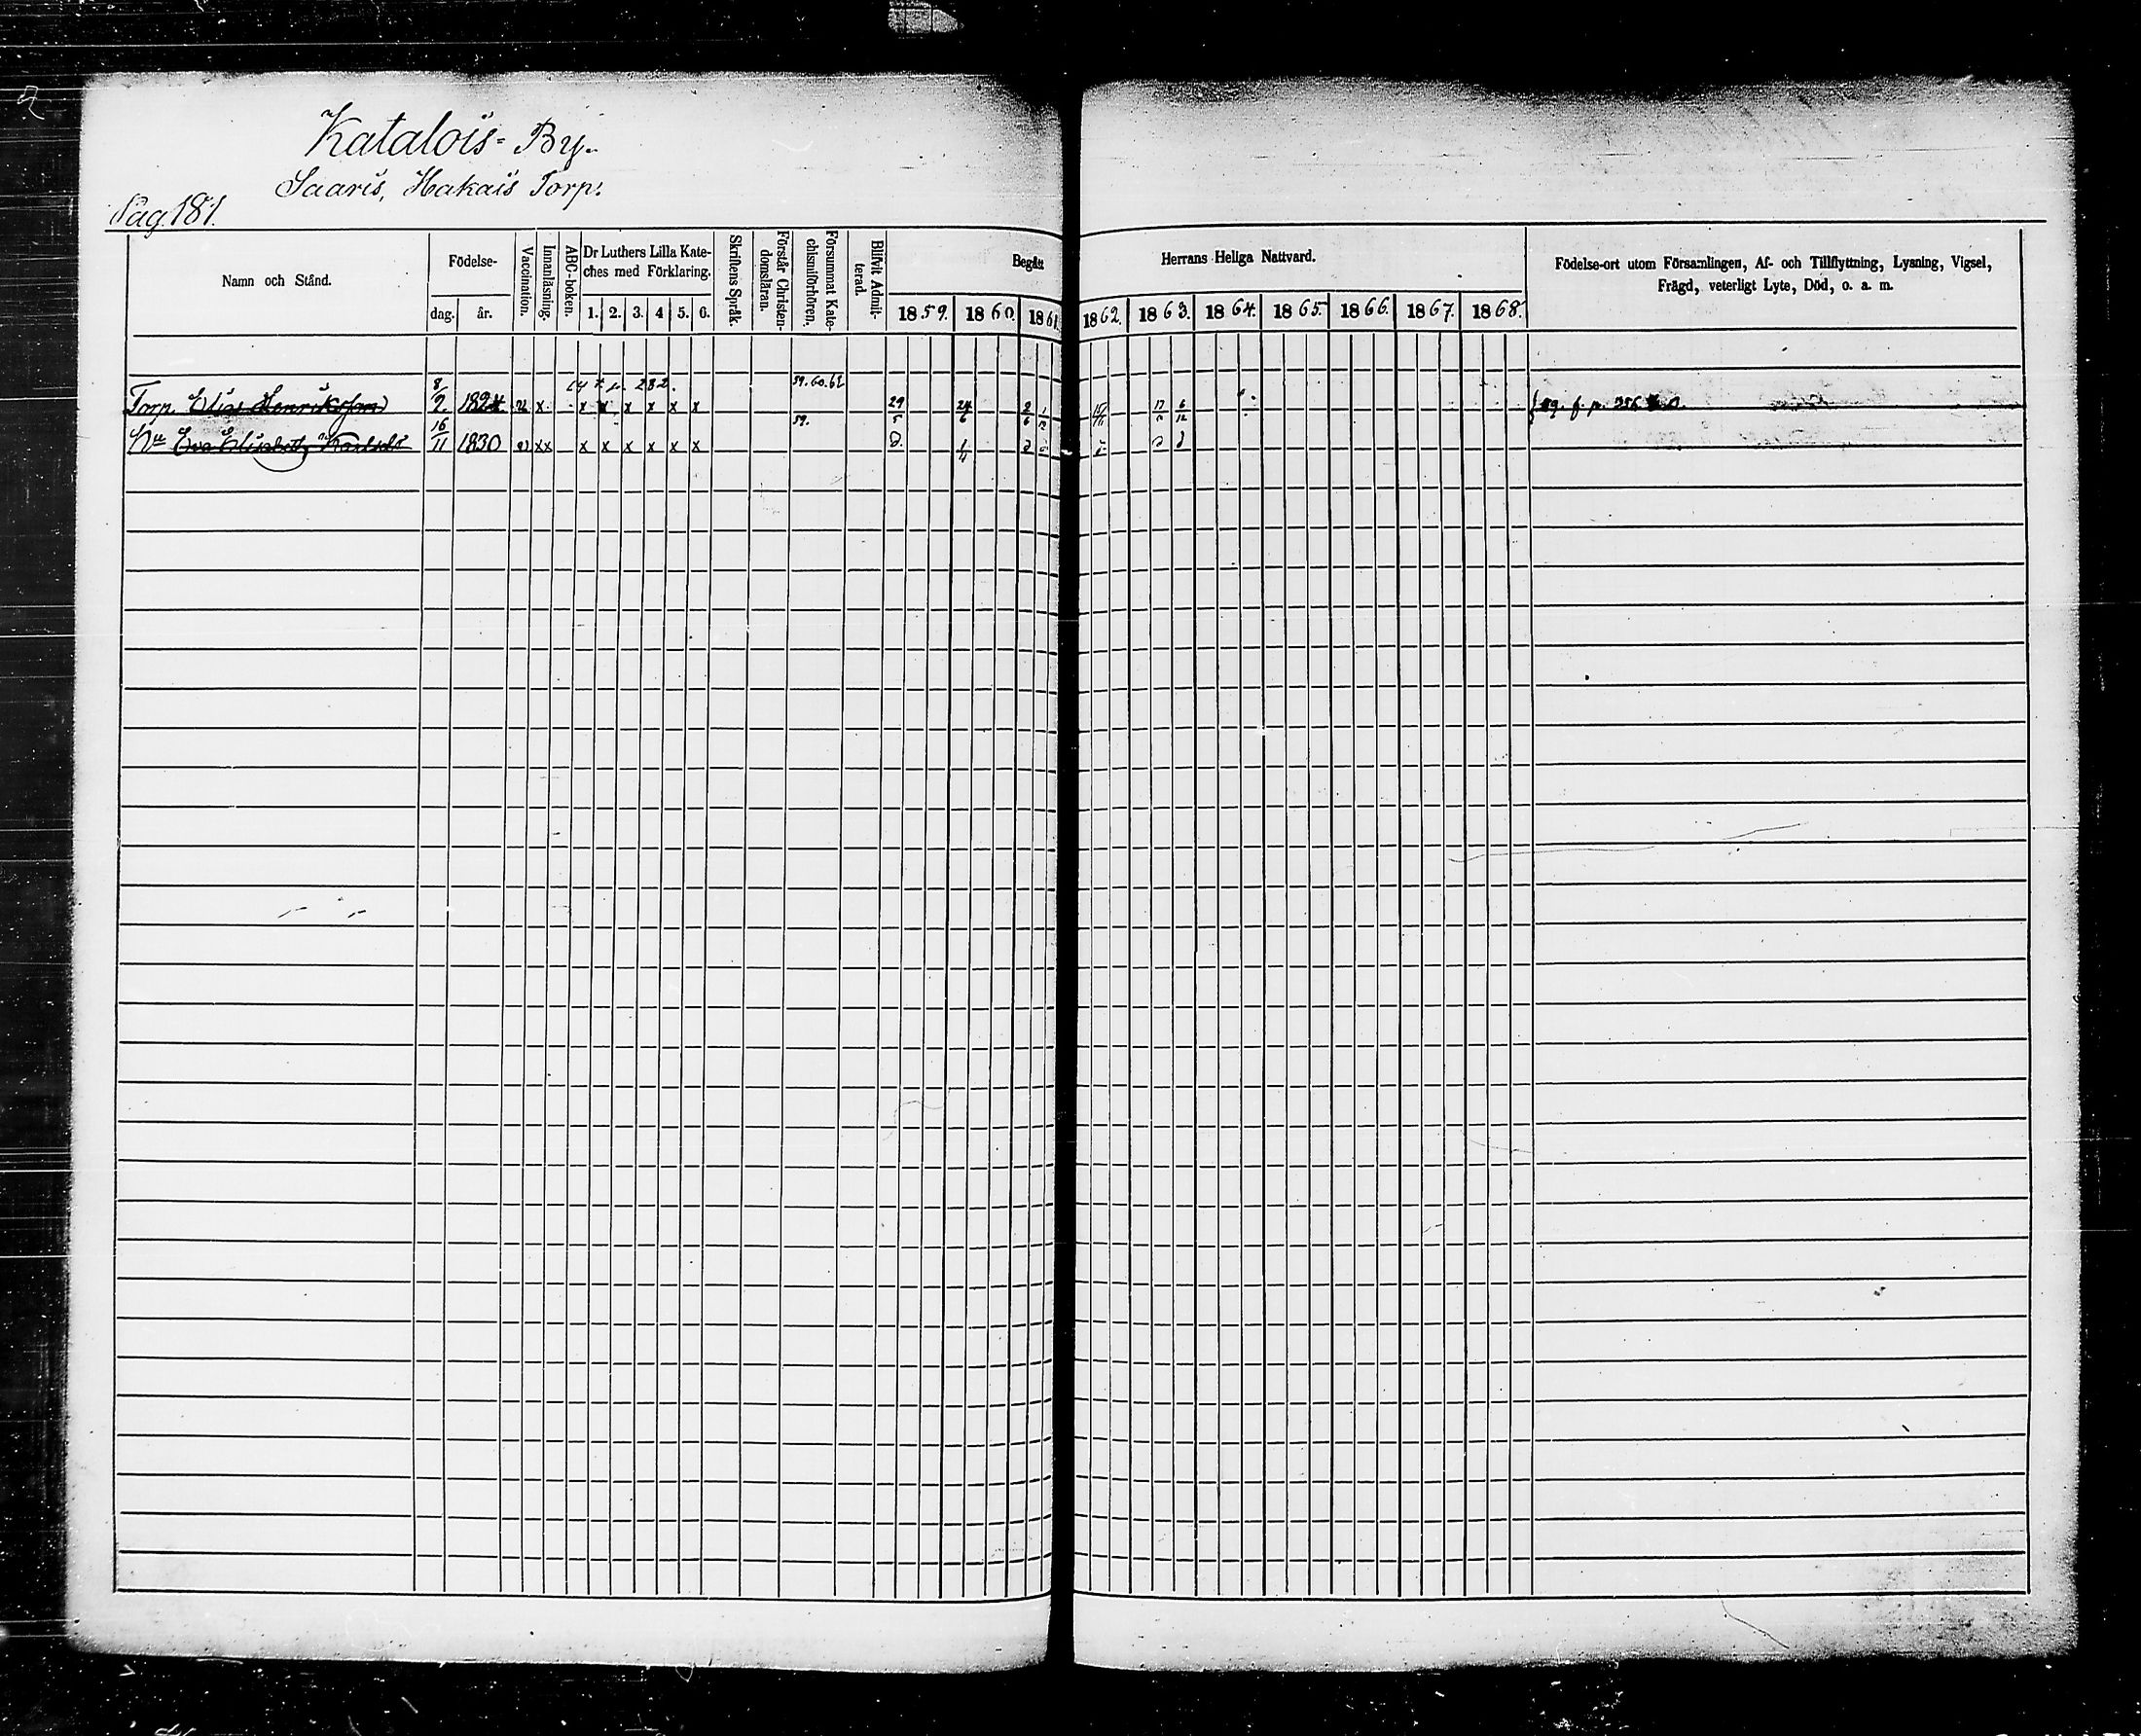 Katalois- By.
Saaris, Hakais Torp.
Pag. 181.
Namn och Stånd.
Födelse-
dag. år.
Vaccination.
Innanläsning.
ABC-boken.
Dr Luthers Lilla Kate-
ches med Förklaring.
1. 2. 3. 4 5. 6.
Skriftens Språk.
Förstår Christen-
domsläran.
Försummat Kate-
chismiförhören.
Blifvit Admit-
terad.
Begått Herrans Heliga Nattvard.
1859. 1860. 1861 1862. 1863. 1864. 1865. 1866. 1867. 1868.
Födelse-ort utom Församlingen, Af- och Tillflyttning, Lysning, Vigsel,
Frägd, veterligt Lyte, Död, o. a. m.
59. 60. 62
Torp. Elias Henriksson 8/9. 1824 v x x x x x x x 29/5 24/6 2/6 1/12 6/12
59.
Hu Eva Elisabeth Karlsd 16/11 1830 v x x x x x x x x